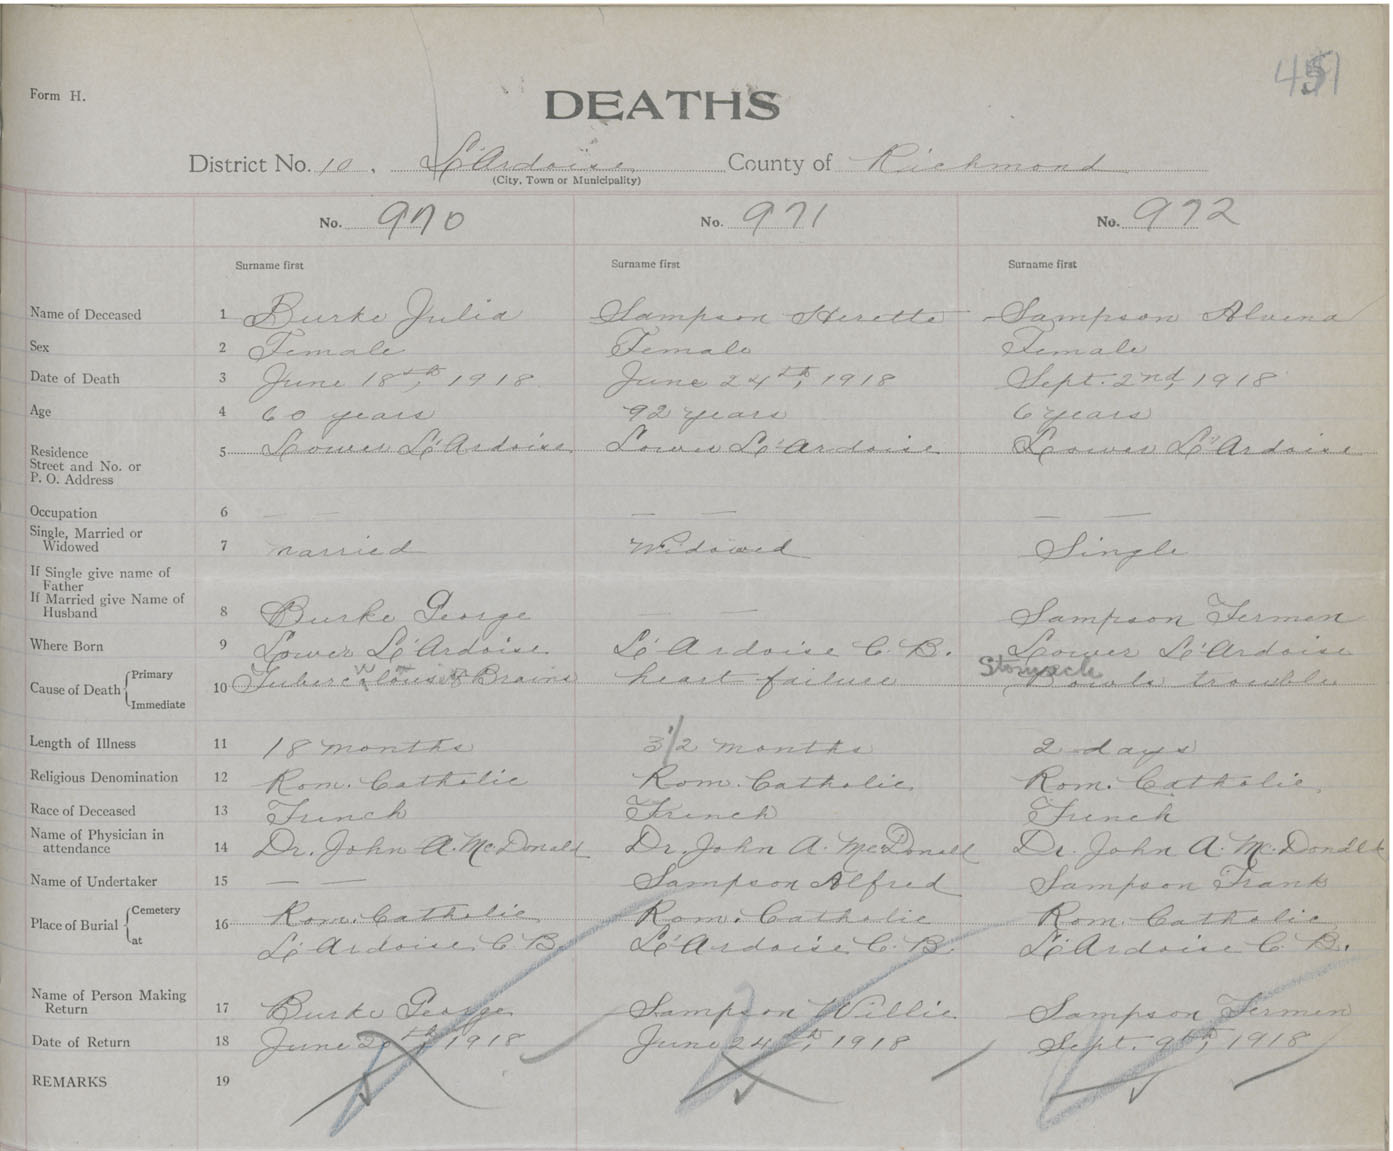 451
Form H.
DEATHS
District No. 10. L'Ardoise County of Richmond
(City, Town or Municipality)
No. 970 No. 971 No. 972
Surname first Surname first Surname first
Name of Deceased 1 Burke Julia Sampson Herette Sampson Alvena
Sex 2 Female Female Female
Date of Death 3 June 18th, 1918 June 24th, 1918 Sept. 2nd, 1918
Age 4 60 years 92 years 6 years
Residence 5 Lower L'Ardoise Lower L'Ardoise Lower L'Ardoise
Street and No. or
P. O. Address
Occupation 6 — — — — — —
Single, Married or
Widowed 7 married Widowed Single
If Single give name of
Father
If Married give Name of
Husband 8 Burke George — — Sampson Fermen
Where Born 9 Lower L'Ardoise L'Ardoise C. B. Lower L'Ardoise
Stomach
Cause of Death Primary 10 Brains heart failure Bowls trouble
Immediate
Length of Illness 11 18 months 3 1/2 months 2 days
Religious Denomination 12 Rom. Catholic Rom. Catholic Rom. Catholic
Race of Deceased 13 French French French
Name of Physician in
attendance 14 Dr. John A. McDonald Dr. John A. McDonald Dr. John A. McDonald
Name of Undertaker 15 — — Sampson Alfred Sampson Frank
Place of Burial Cemetery 16 Rom. Catholic Rom. Catholic Rom. Catholic
at L'Ardoise C. B. L'Ardoise C. B. L'Ardoise C. B.
Name of Person Making
Return 17 Burke George Sampson Willie Sampson Fermen
Date of Return 18 June 20th, 1918 June 24th, 1918 Sept. 9th, 1918
REMARKS 19